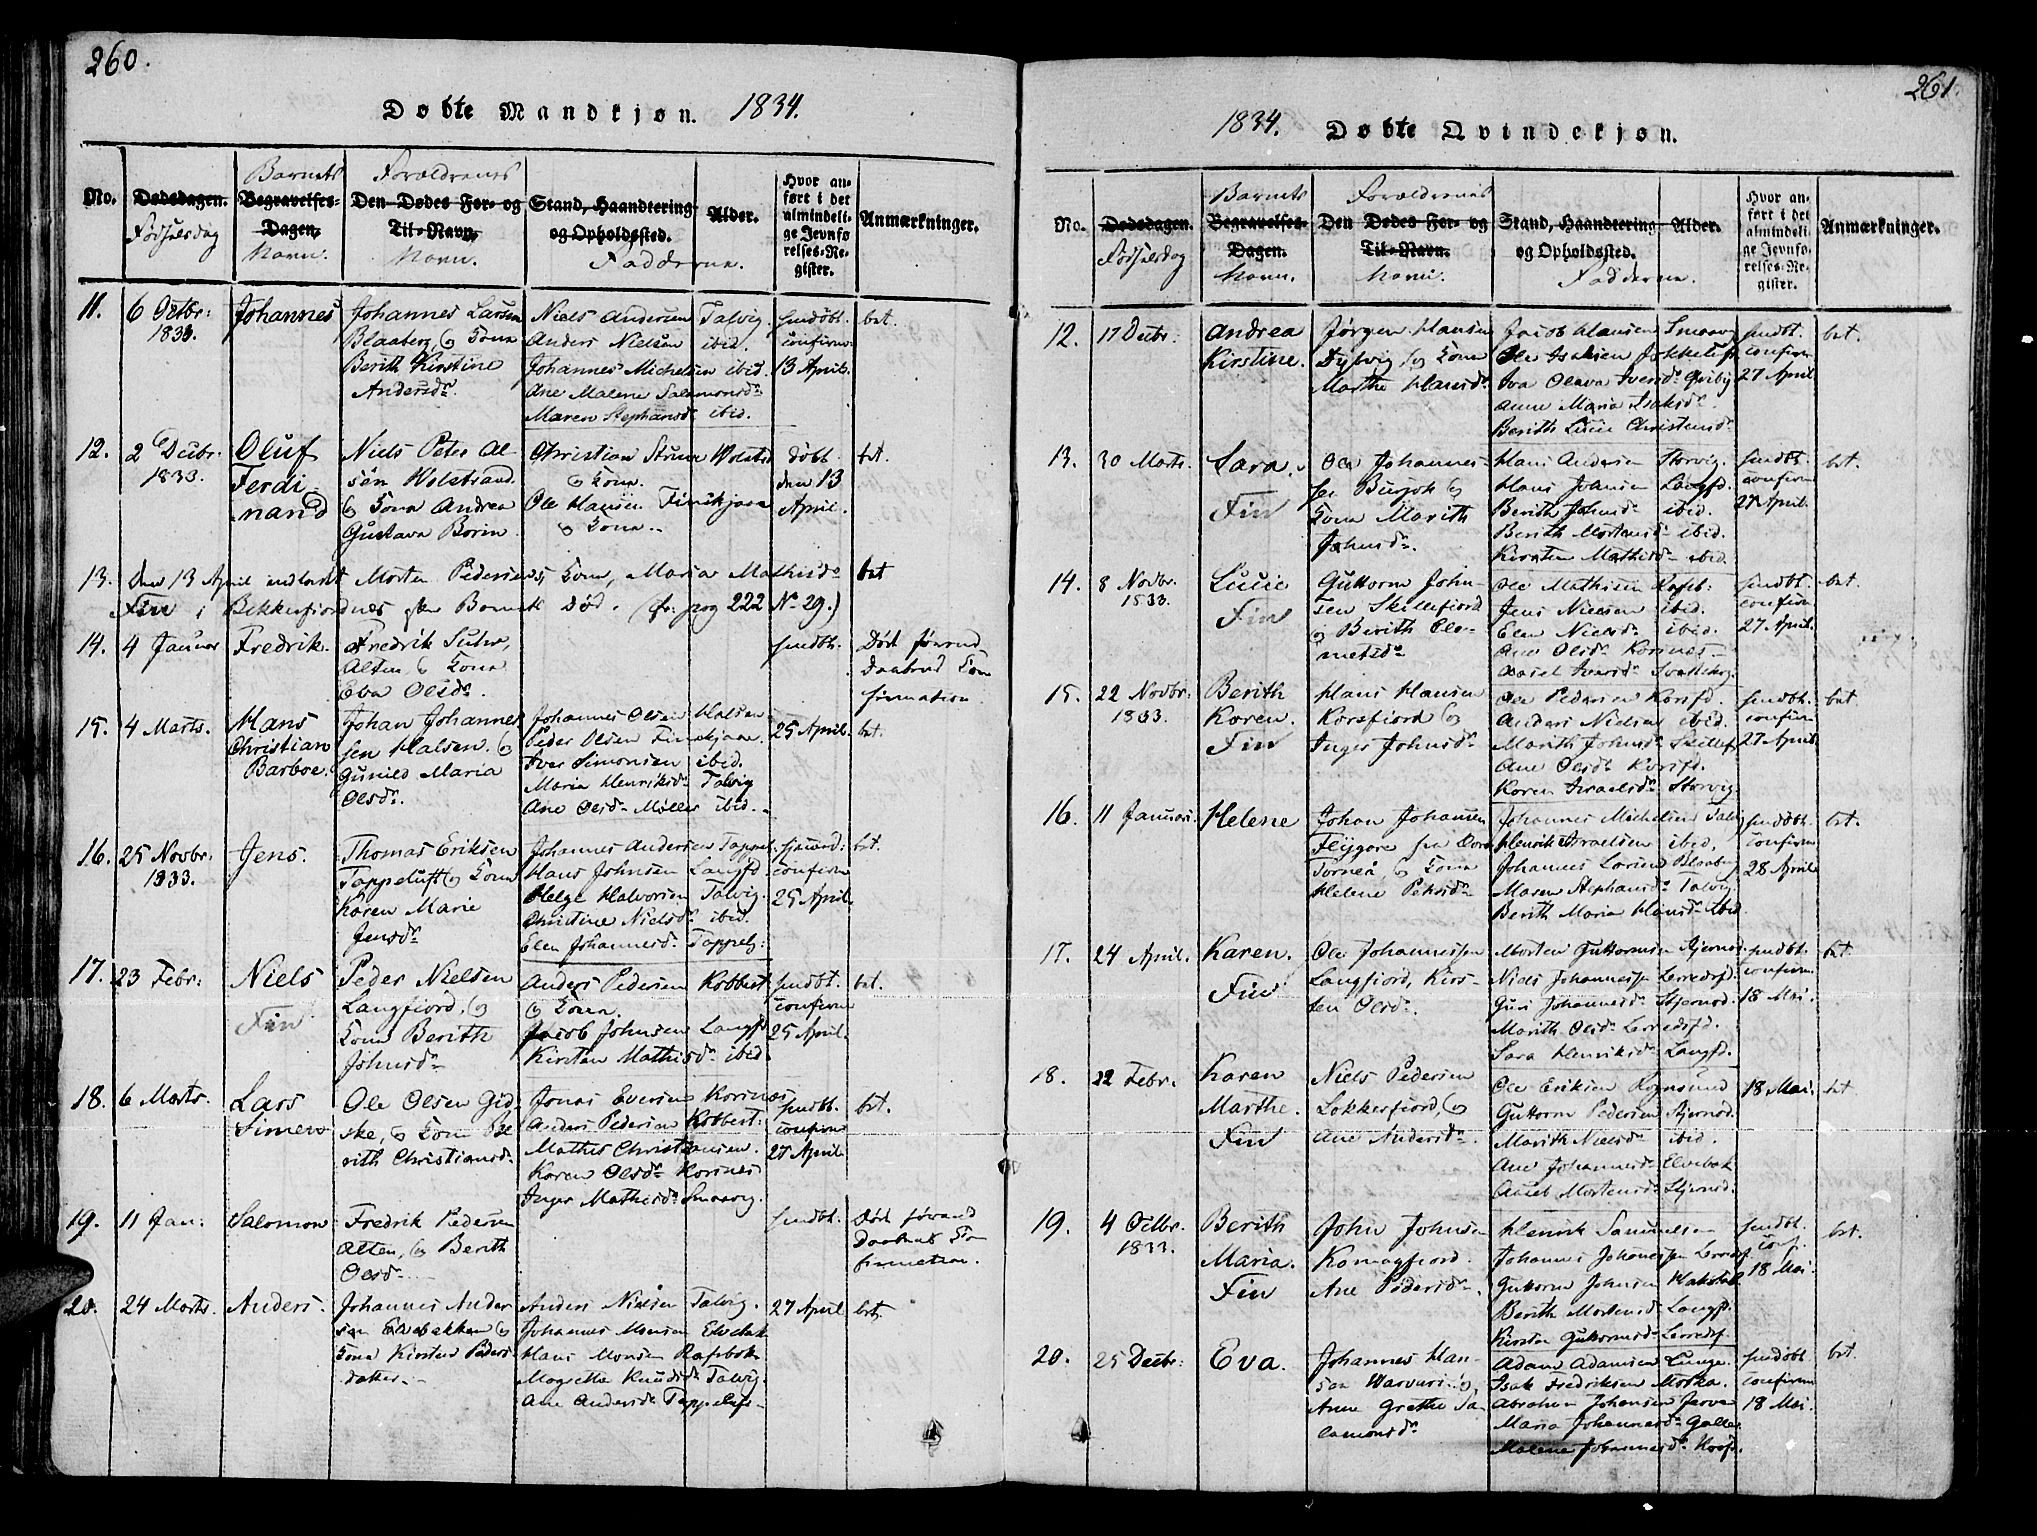 260.
Døbte Mandkjøn. 1834.
No.
Dødsdagen.
Fødselsdag
Barnets
Begravelses-
Dagen,
Navn.
Forældrenes
Den Dødes For- og
Til-Navn.
Navn.
Stand, Haandtering
og Opholdssted.
Fadderne.
Alder.
Hvor an-
ført i det
almindeli-
ge Jevnfø
relses-Re-
gister.
Anmærkninger.
11. 6 Octbr:
1833.
Johannes
Johannes Larsen
Blaaberg, og Kona
Berith Kirstine
Andersdr.
Niels Andersen Talvig.
Anders Nielsen ibid.
Johannes Michelsen ibid.
Ane Malene Salamonsdr
Maren Stephansdr ibid.
hmdøbt.
confirm
13 April.
bet.
12. 2 Decbr:
1833.
Oluf
Ferdi-
nand
Niels Peter Al-
sen Wolstrand
og Kona Andrea
Gustava Borin
Christian
og Kona.
Ole Hansen Finskjaae
og Kona.
døbt
den 13
April.
bet.
13. Den 13 April indledet Morten Pedersens Kona, Maria Mathisdr
Fin i Bekkerfjordnes efter Barnets Død. (cfr. pag 222 No 29.)
bet
14. 4 Januar
Fredrik.
Fredrik
Alten og Kona
Eva Olsdr.
hmdbt.
Død førend
Daabens Con
firmation.
15. 4 Marts.
Hans
Christian
Barboe.
Johan Johannes
sen Halsen. og
Gunild Maria
Olsdr.
Johannes Olsen Halsen
Peder Olsen Finskjaae.
Iver Simonsen ibid.
Maria Henriksdr Talvig
Ane Olsdr Møller ibid.
25 April.
bet.
16. 25 Novbr:
1833.
Jens.
Thomas Eriksen
Tappeluft og Kona
Karen Marie
Jensdr
Johannes Andersen Tappel.
Hans Johnsen Langfd
Helge Halvorsen Talvig.
Christine Nielsdr ibid.
Elen Johannesdr Tappelf:
confirm
25 April.
bet.
17. 23 Febr:
Niels
Fin
Peder Nielsen
Langfjord, og
Kona Berith
Johnsdr
Anders Pedersen Kobbest
og Kona.
Jacob Johnsen Langfd
Kirsten Mathisdr ibid.
hmdbt.
confirm
25 April.
bet.
18. 6 Marts.
Lars
Simen
Ole Olsen Gid-
ske, og Kona Be
rith Christiansdr.
Jonas Eversen Korsnes
Anders Pedersen Kobbest:
Mathis Christiansen.
Karen Olsdr Korsnes
Inger Mathisdr Smaavig.
hmdbt.
confirm
27 April
bet.
19. 11 Jan:
Salomon
Fredrik Pedersen
Alten, og Berith
Olsdr.
hmdbt.
Død førend
Daabens Con
firmation.
20. 24 Marts.
Anders.
Johannes Ander
sen Elvebakken og
Kona Kirsten Peders
datter.
Anders Nielsen Talvig.
Johannes Monsen Elvebak
Hans Monsen Rafsbotn
Magrette Knudsdr Talvig.
Ane Andersdr Tappeluft.
27 April
bet.
261.
1834. Døbte Qvindekjøn.
No.
Dødsdagen.
Fødselsdag
Barnets
Begravelses-
Dagen.
Navn.
Forældrenes
Den Dødes For- og
Til-Navn.
Navn.
Stand, Haandtering
og Opholdssted.
Fadderne.
Alder.
Hvor an-
ført i det
almindeli-
ge Jevnfø-
relses-Re-
gister.
Anmærkninger.
12. 17 Decbr:
Andrea
Kirstine.
Jørgen Hansen
Dylvig, og Kona
Marthe Hansdr.
Jacob Hansen Smaavg
Ole Isaksen Jøkkeluft
Iva Olava Iversdr Qviby
Anne Maria Isaksdr.
Berith Lucie Christensdr
hmdbt.
confirm
27 April
bet.
13. 30 Marts.
Sara.
Fin
Ole Johannes-
sen og
Kona Marith
Johnsdr.
Hans Andersen Storvig.
Hans Johnsen Langfd.
Berith Johnsdr ibid.
Berith Mortensdr ibid.
Kirsten Mathisdr ibid.
hmdbt.
confirm
27 April.
bet.
14. 8 Novbr.
1833.
Lucie
Fin
Guttorm John-
sen Skillefjord
og Berith Cle-
metsdr
Ole Mathisen Rafsb:
Jens Nielsen ibid.
Elen Nielsdr ibid.
Ane Olsdr Korsnes
Aasel Iversdr
hmdbt.
confirm
27 April.
bet.
15. 22 Novbr:
1833.
Berith
Karen.
Fin
Hans Hansen
Korsfjord og
Inger Johnsdr
Ole Pedersen Korsfd.
Anders Nielsen ibid.
Marith Johnsdr Skillef.
Ane Olsdr Korsfd.
Karen Israelsdr Storvig
hmdbt.
confirm
27 April
bet.
16. 11 Januar.
Helene
Johan Johansen
Fra
Torneå, og Kona
Helene Petersdr
Johannes Michelsen Talv
Henrik Israelsen ibid.
Johannes Larsen Blaaberg
Maren Stephansdr Talvig.
Berith Maria Hansdr ibid.
hmdbt.
confirm
28 April
bet.
17. 24 April.
Karen.
Fin
Ole Johannessen
Langfjord, Kirs-
ten Olsdr.
Morten Guttormsen Stjernød.
Niels Johannessen Lerredsfd.
Guri Johannesdr Stjernød.
Marith Olsdr Lerredsfd.
Sara Henriksdr Langfd.
hmdbt.
confirm
18 Mai.
bet.
18. 22 Febr.
Karen
Marthe.
Fin
Niels Pedersen
Lokkerfjord, og
Ane Andersdr.
Ole Eriksen Rognsund
Guttorm Pedersen Stjernød.
Marith Nielsdr ibid.
Ane Johannesdr Elvebak
Aasel Mortensdr Stjernød.
18 Mai.
bet
19. 4 Octbr.
1833.
Berith
Maria.
Fin
John Johnsen
Komagfjord.
Ane Pedersdr.
Henrik Samuelsen
Johannes Johannessen Lerredsf.
Guttorm Johnsen Hakstab
Berith Mortensdr Langfd.
Kirsten Guttormsdr Lerredsf.
hmdbt.
conf.
18 Mai.
bet.
20. 25 Decbr:
Eva.
Johannes Han-
sen Warvuri, og
Anne Grethe Sa-
lamonsdr
Adam Adamsen Lunge.
Isak Fredriksen Moska.
Abraham Johansen Jerva
Maria Johannesdr Galle
Malene Johannesdr
hmdøbt
confirm
18 Mai.
bet.